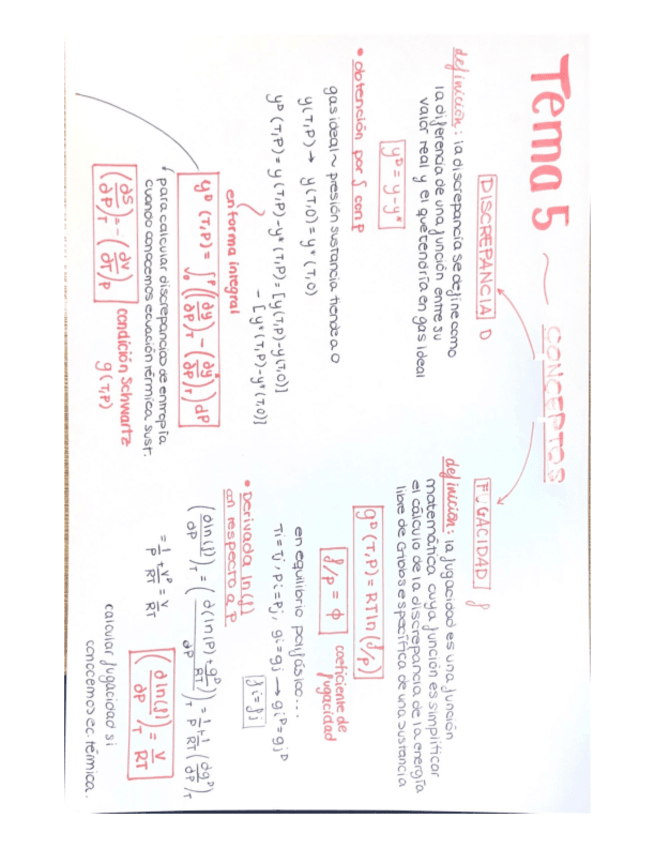 Tema 5 ~ CONCEPTOS
DISCREPANCIA D
definición: la discrepancia se define como
la diferencia de una función entre su
valor real y el que tendría en gas ideal
yᴰ = y - y*
• obtención por ∫ con P
gas ideal ~ presión sustancia tiende a 0
y(T,P) → y(T,0) = y*(T,0)
yᴰ(T,P) = y(T,P) - y*(T,P) = [y(T,P) - y(T,0)]
- [y*(T,P) - y*(T,0)]
en forma integral
yᴰ(T,P) = ∫₀ᴾ ((∂y/∂P)_T - (∂y*/∂P)_T) dP
para calcular discrepancias de entropía
cuando conocemos ecuación térmica sust.
(∂S/∂P)_T = -(∂v/∂T)_P
condición Schwartz
g(T,P)
FUGACIDAD f
definición: la fugacidad es una función
matemática cuya función es simplificar
el cálculo de la discrepancia de la energía
libre de Gibbs específica de una sustancia
gᴰ(T,P) = RT ln(f/p)
f/p = ϕ
coeficiente de
fugacidad
en equilibrio polifásico...
Ti = Tj, Pi = Pj, gi = gj → giᴰ = gjᴰ
fi = fj
• Derivada ln(f)
con respecto a P
(∂ln(f)/∂P)_T = (∂(ln(P) + gᴰ/RT)/∂P)_T = 1/P + 1/RT (∂gᴰ/∂P)_T
= 1/P + vᴰ/RT = v/RT
(∂ln(f)/∂P)_T = v/RT
calcular fugacidad si
conocemos ec. térmica.